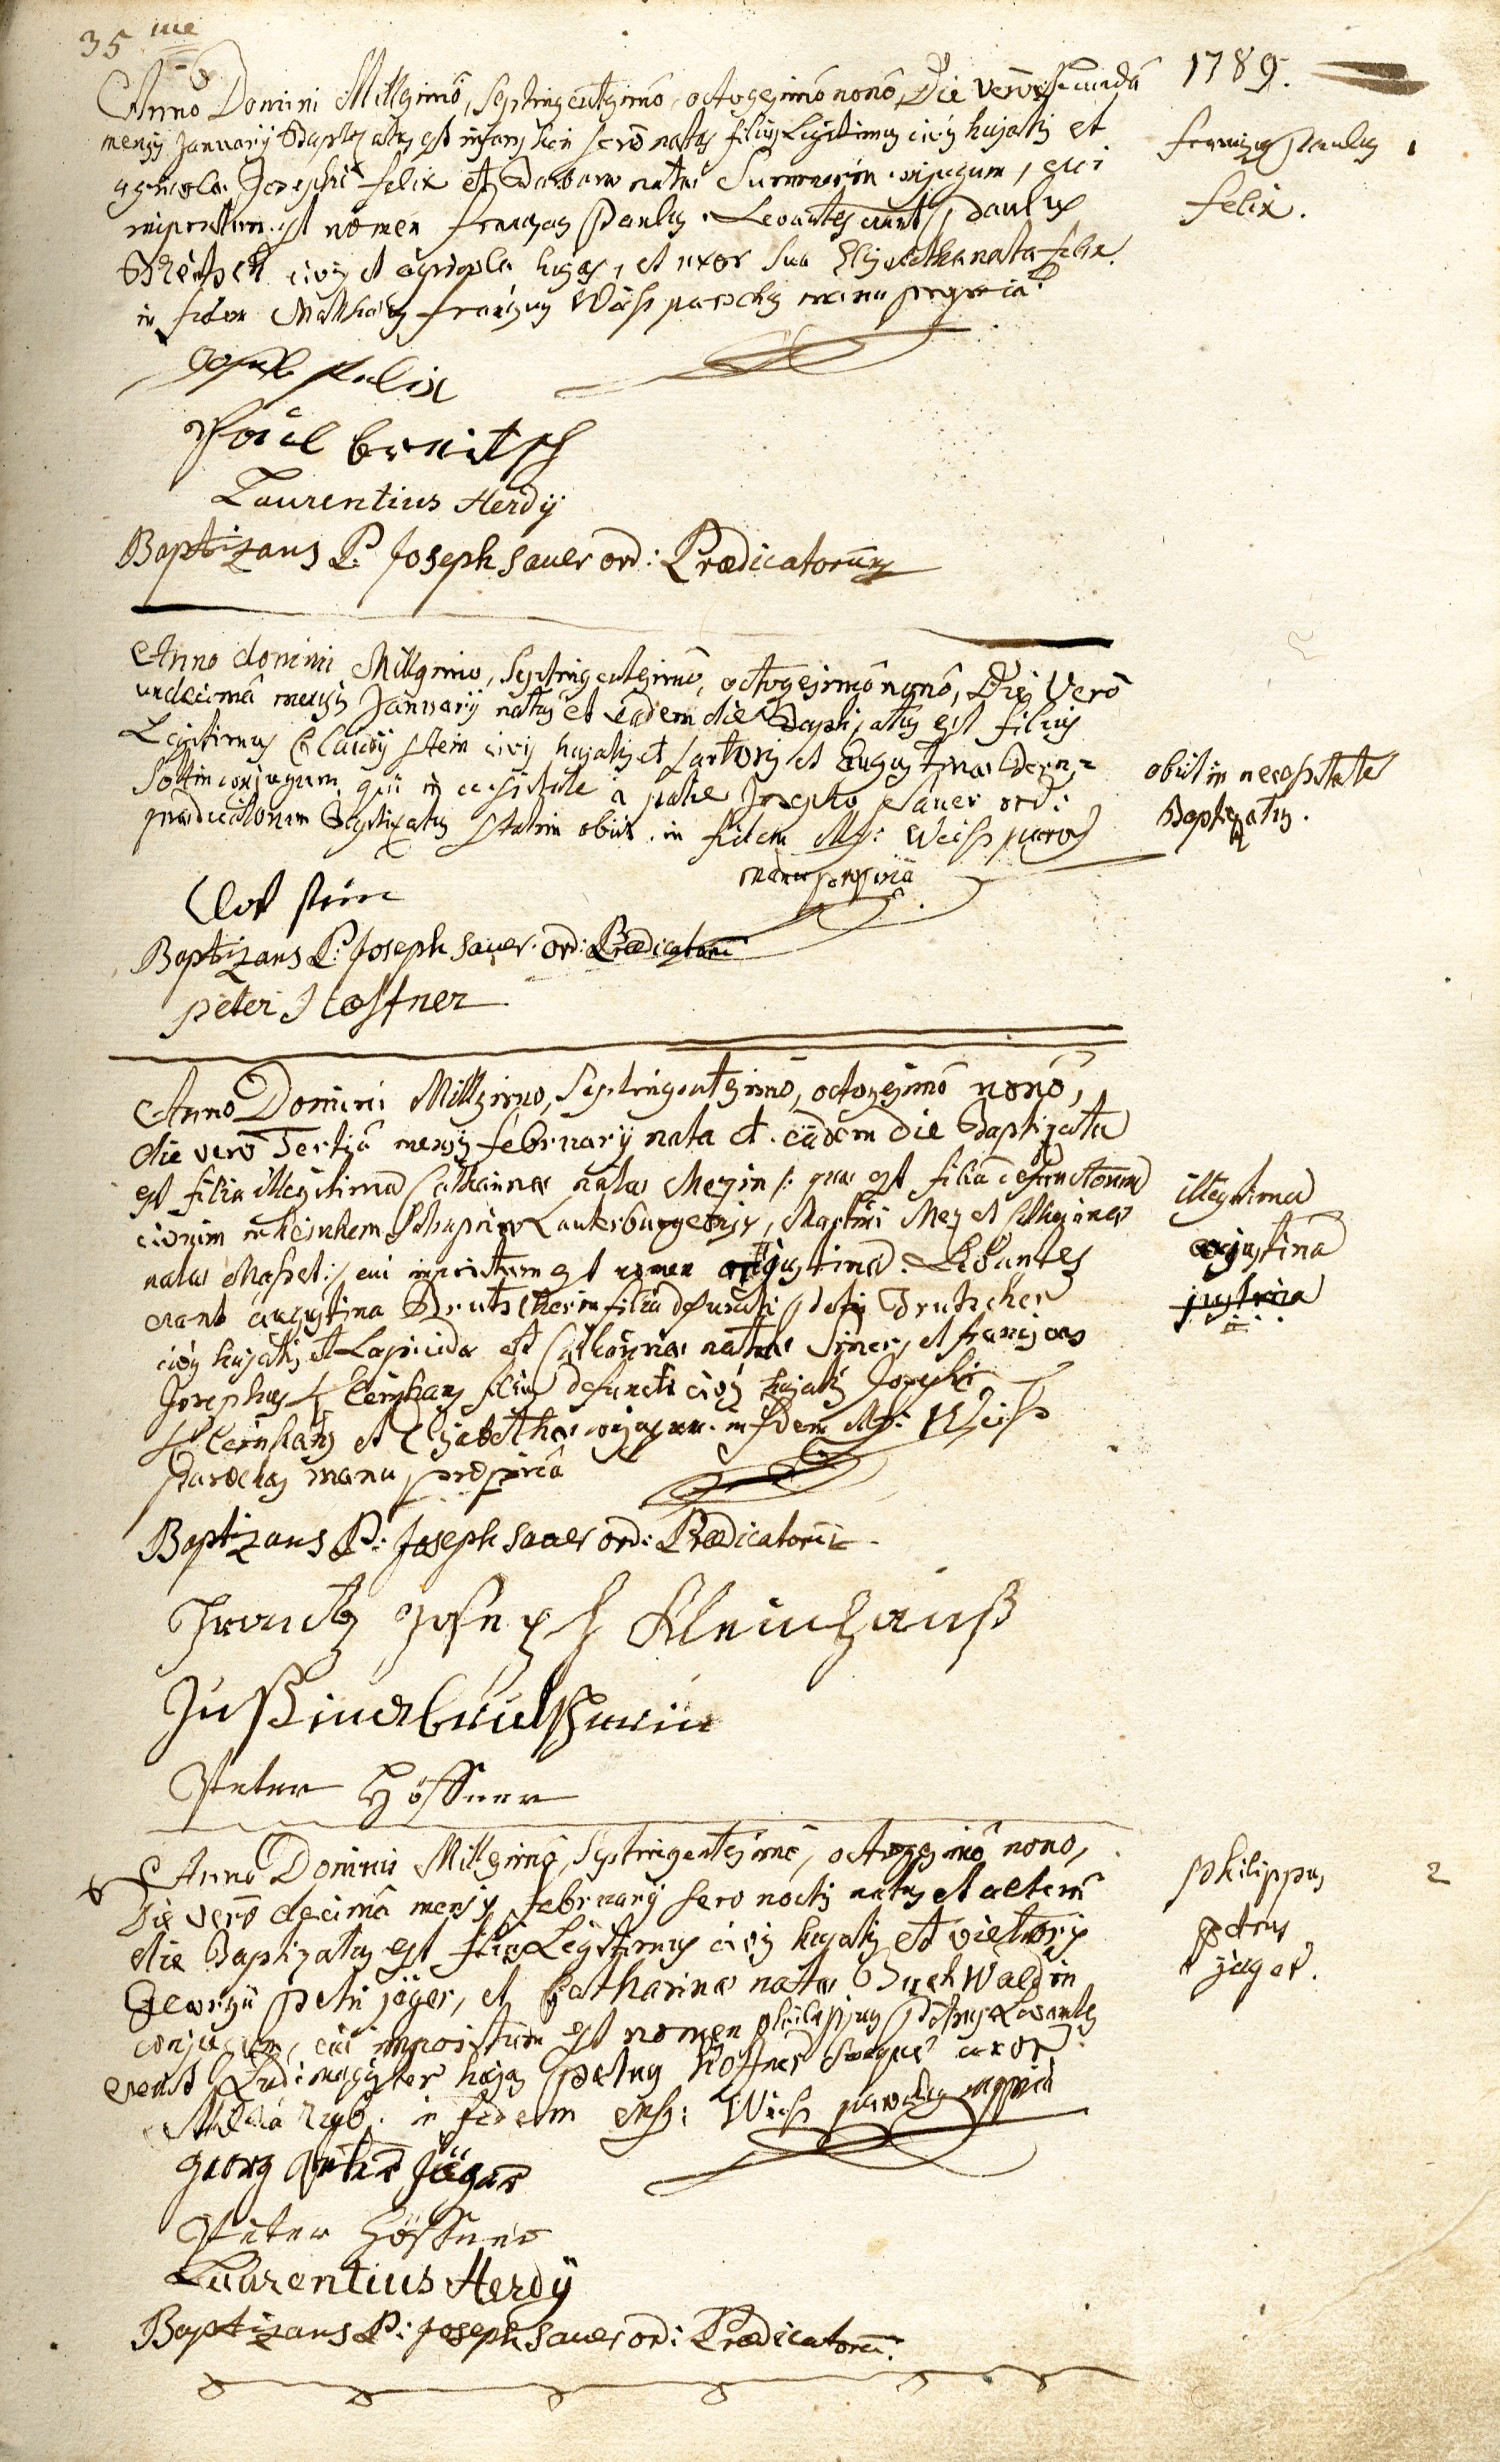 35 me
1789.
Anno Domini Millesimô, Septingentesimô, octogesimô nonô, Die verô secundâ
mensis Januarÿ Baptizatus est infans heri serô natus filius Legitimus civis hujatis et
agricolæ Josephi felix et Barbaræ natæ conjugum, cui
impositum est nomen franciscus Paulus. Levantes erant Paulus
civis et agricola hujas, et uxor sua Elisabetha nata felix.
in fidem Matthias franciscus Weiss parochus manu propriâ
franciscus Paulus 1
felix.
Joseph felix
Paul Breitsch
Laurentius Herdÿ
Baptizans P. Joseph Sauer ord: Prædicatorum
Anno domini Millesimo, Septingentesimô, octogesimô nonô, Die Verô
undecimâ mensis Januarÿ natus et eâdem die Baptizatus est filius
Legitimus Claudÿ Stein civis hujatis et sartoris et Augustinæ
conjugum, qui in necessitate à patre Josepho Sauer ord:
prædicatorum Baptizatus statim obiit. in fidem Mf: Weiss paroch
manu propriâ
obiit in necessitate
Baptizatus.
Clod stein
Baptizans P: Joseph Sauer ord: Prædicatorû
peter Hoffner
Anno Domini Millesimo, Septingentesimô, octogesimô nonô,
die verô Tertiâ mensis februarÿ nata et eâdem die Baptizata
est filia illegitima Catharinæ natæ Mezin /: quæ est filia defunctorum
civium in Lauterburgensis, Martini Mez et
natæ :/ cui impositum est nomen justina. Levantes
erant augustina Brutscherin filia defuncti petri Brutscher
civis hujatis et Lapicidæ et Catharinæ natæ et franciscus
Josephus Kleinhans filius defuncti civis hujatis Josephi
Kleinhans et Elisabethæ conjugum. in fidem Mf: Weiss
Parochus manu propriâ
illegitima
augustina
justina
Baptizans P: Joseph Sauer ord: Prædicatorû
Frantz Joseph Kleinhanß
Justina brutscherin
Peter Höffner
Anno Domini Millesimô, Septingentesimô, octogesimô nono,
Die verô decimâ mensis februarÿ sero noctis natus et alterâ
die Baptizatus est filius Legitimus civis hujatis et vietoris
Georgii petri jäger, et Catharinæ natæ Buchwaldin
conjugum, cui impositum est nomen philippus Petrus Levantes
erant Ludimagister hujas petrus Höffner suaque uxor
Maria in fidem Mf: Weiss parochus mppriâ
philippus 2
petrus
jäger.
georg peter Jäger
Peter Höffner
Laurentius Herdÿ
Baptizans P: Joseph Sauer ord: Prædicatorû.